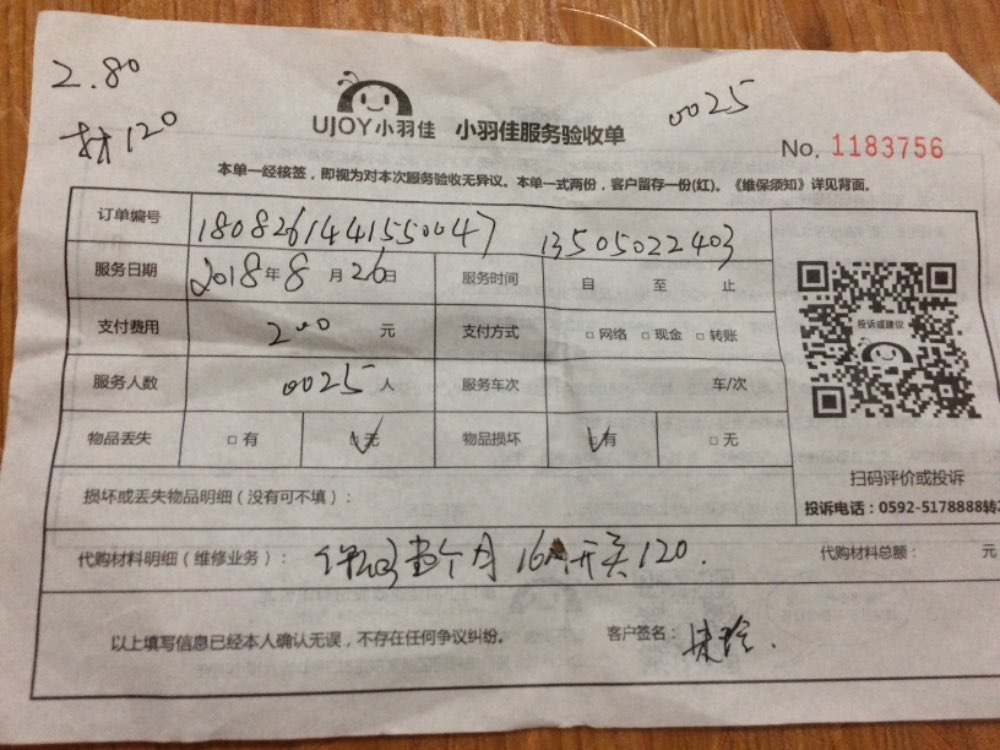 2.80
材120
UJOY小羽佳 小羽佳服务验收单
0025
No. 1183756
本单一经核签，即视为对本次服务验收无异议。本单一式两份，客户留存一份(红)。《维保须知》详见背面。
订单编号 1808261441550047 13505022403
服务日期 2018年8月26日 服务时间 自 至 止
支付费用 200 元 支付方式 □网络 □现金 □转账
投诉或建议
服务人数 0025人 服务车次 车/次
物品丢失 □有 □无 物品损坏 □有 □无
扫码评价或投诉
损坏或丢失物品明细（没有可不填）：
投诉电话：0592-5178888转2
代购材料明细（维修业务）： 个月 16 开关120.
代购材料总额： 元
以上填写信息已经本人确认无误，不存在任何争议纠纷。 客户签名：